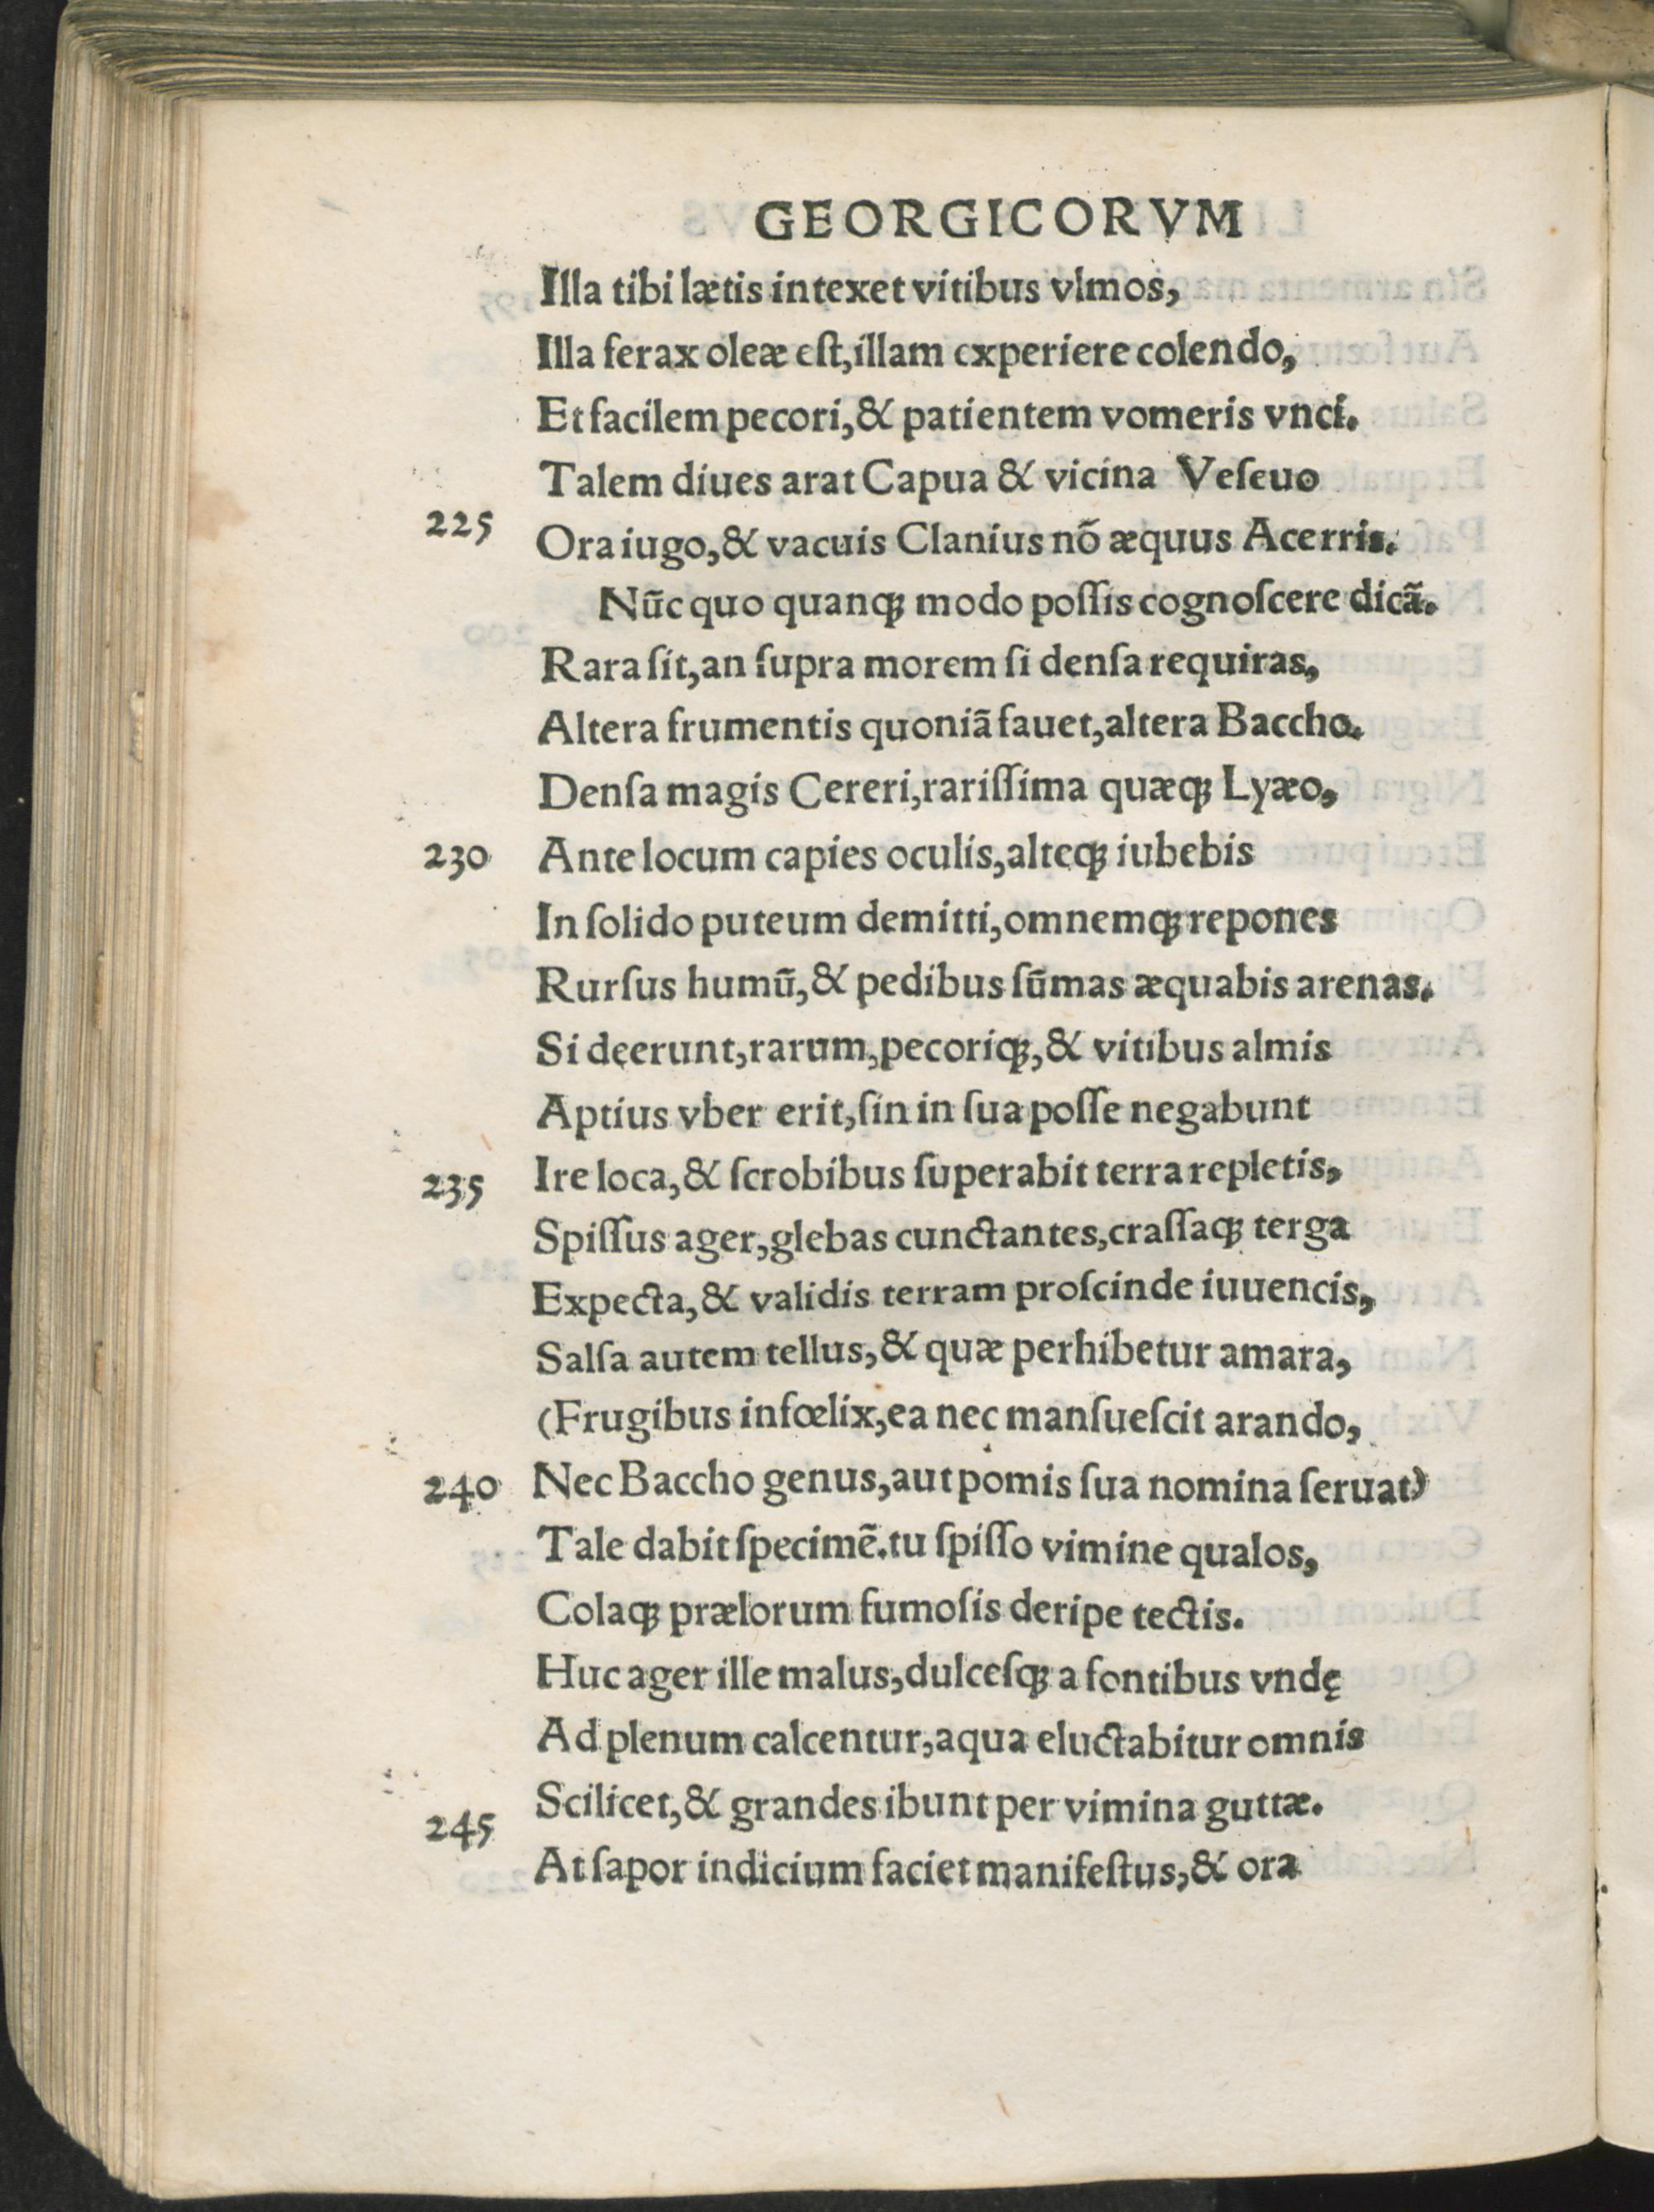 GEORGICORVM
Illa tibi lætis intexet vitibus vlmos,
Illa ferax oleæ eſt, illam experiere colendo,
Et facilem pecori, & patientem vomeris vnci.
Talem diues arat Capua & vicina Veſeuo
225 Ora iugo, & vacuis Clanius nõ æquus Acerris.
Nũc quo quanqꝫ modo poſſis cognoſcere dicã.
Rara ſit, an ſupra morem ſi denſa requiras,
Altera frumentis quoniã fauet, altera Baccho.
Denſa magis Cereri, rariſſima quæqꝫ Lyæo,
230 Ante locum capies oculis, alteqꝫ iubebis
In ſolido puteum demitti, omnemqꝫ repones
Rurſus humũ, & pedibus ſũmas æquabis arenas.
Si deerunt, rarum, pecoriqꝫ, & vitibus almis
Aptius vber erit, ſin in ſua poſſe negabunt
235 Ire loca, & ſcrobibus ſuperabit terra repletis,
Spiſſus ager, glebas cunctantes, craſſaqꝫ terga
Expecta, & validis terram proſcinde iuuencis,
Salſa autem tellus, & quæ perhibetur amara,
(Frugibus infœlix, ea nec manſueſcit arando,
240 Nec Baccho genus, aut pomis ſua nomina ſeruat)
Tale dabit ſpecimẽ. tu ſpiſſo vimine qualos,
Colaqꝫ prælorum fumoſis deripe tectis.
Huc ager ille malus, dulceſqꝫ a fontibus vndę
Ad plenum calcentur, aqua eluctabitur omnis
245 Scilicet, & grandes ibunt per vimina guttæ.
At ſapor indicium faciet manifeſtus, & ora